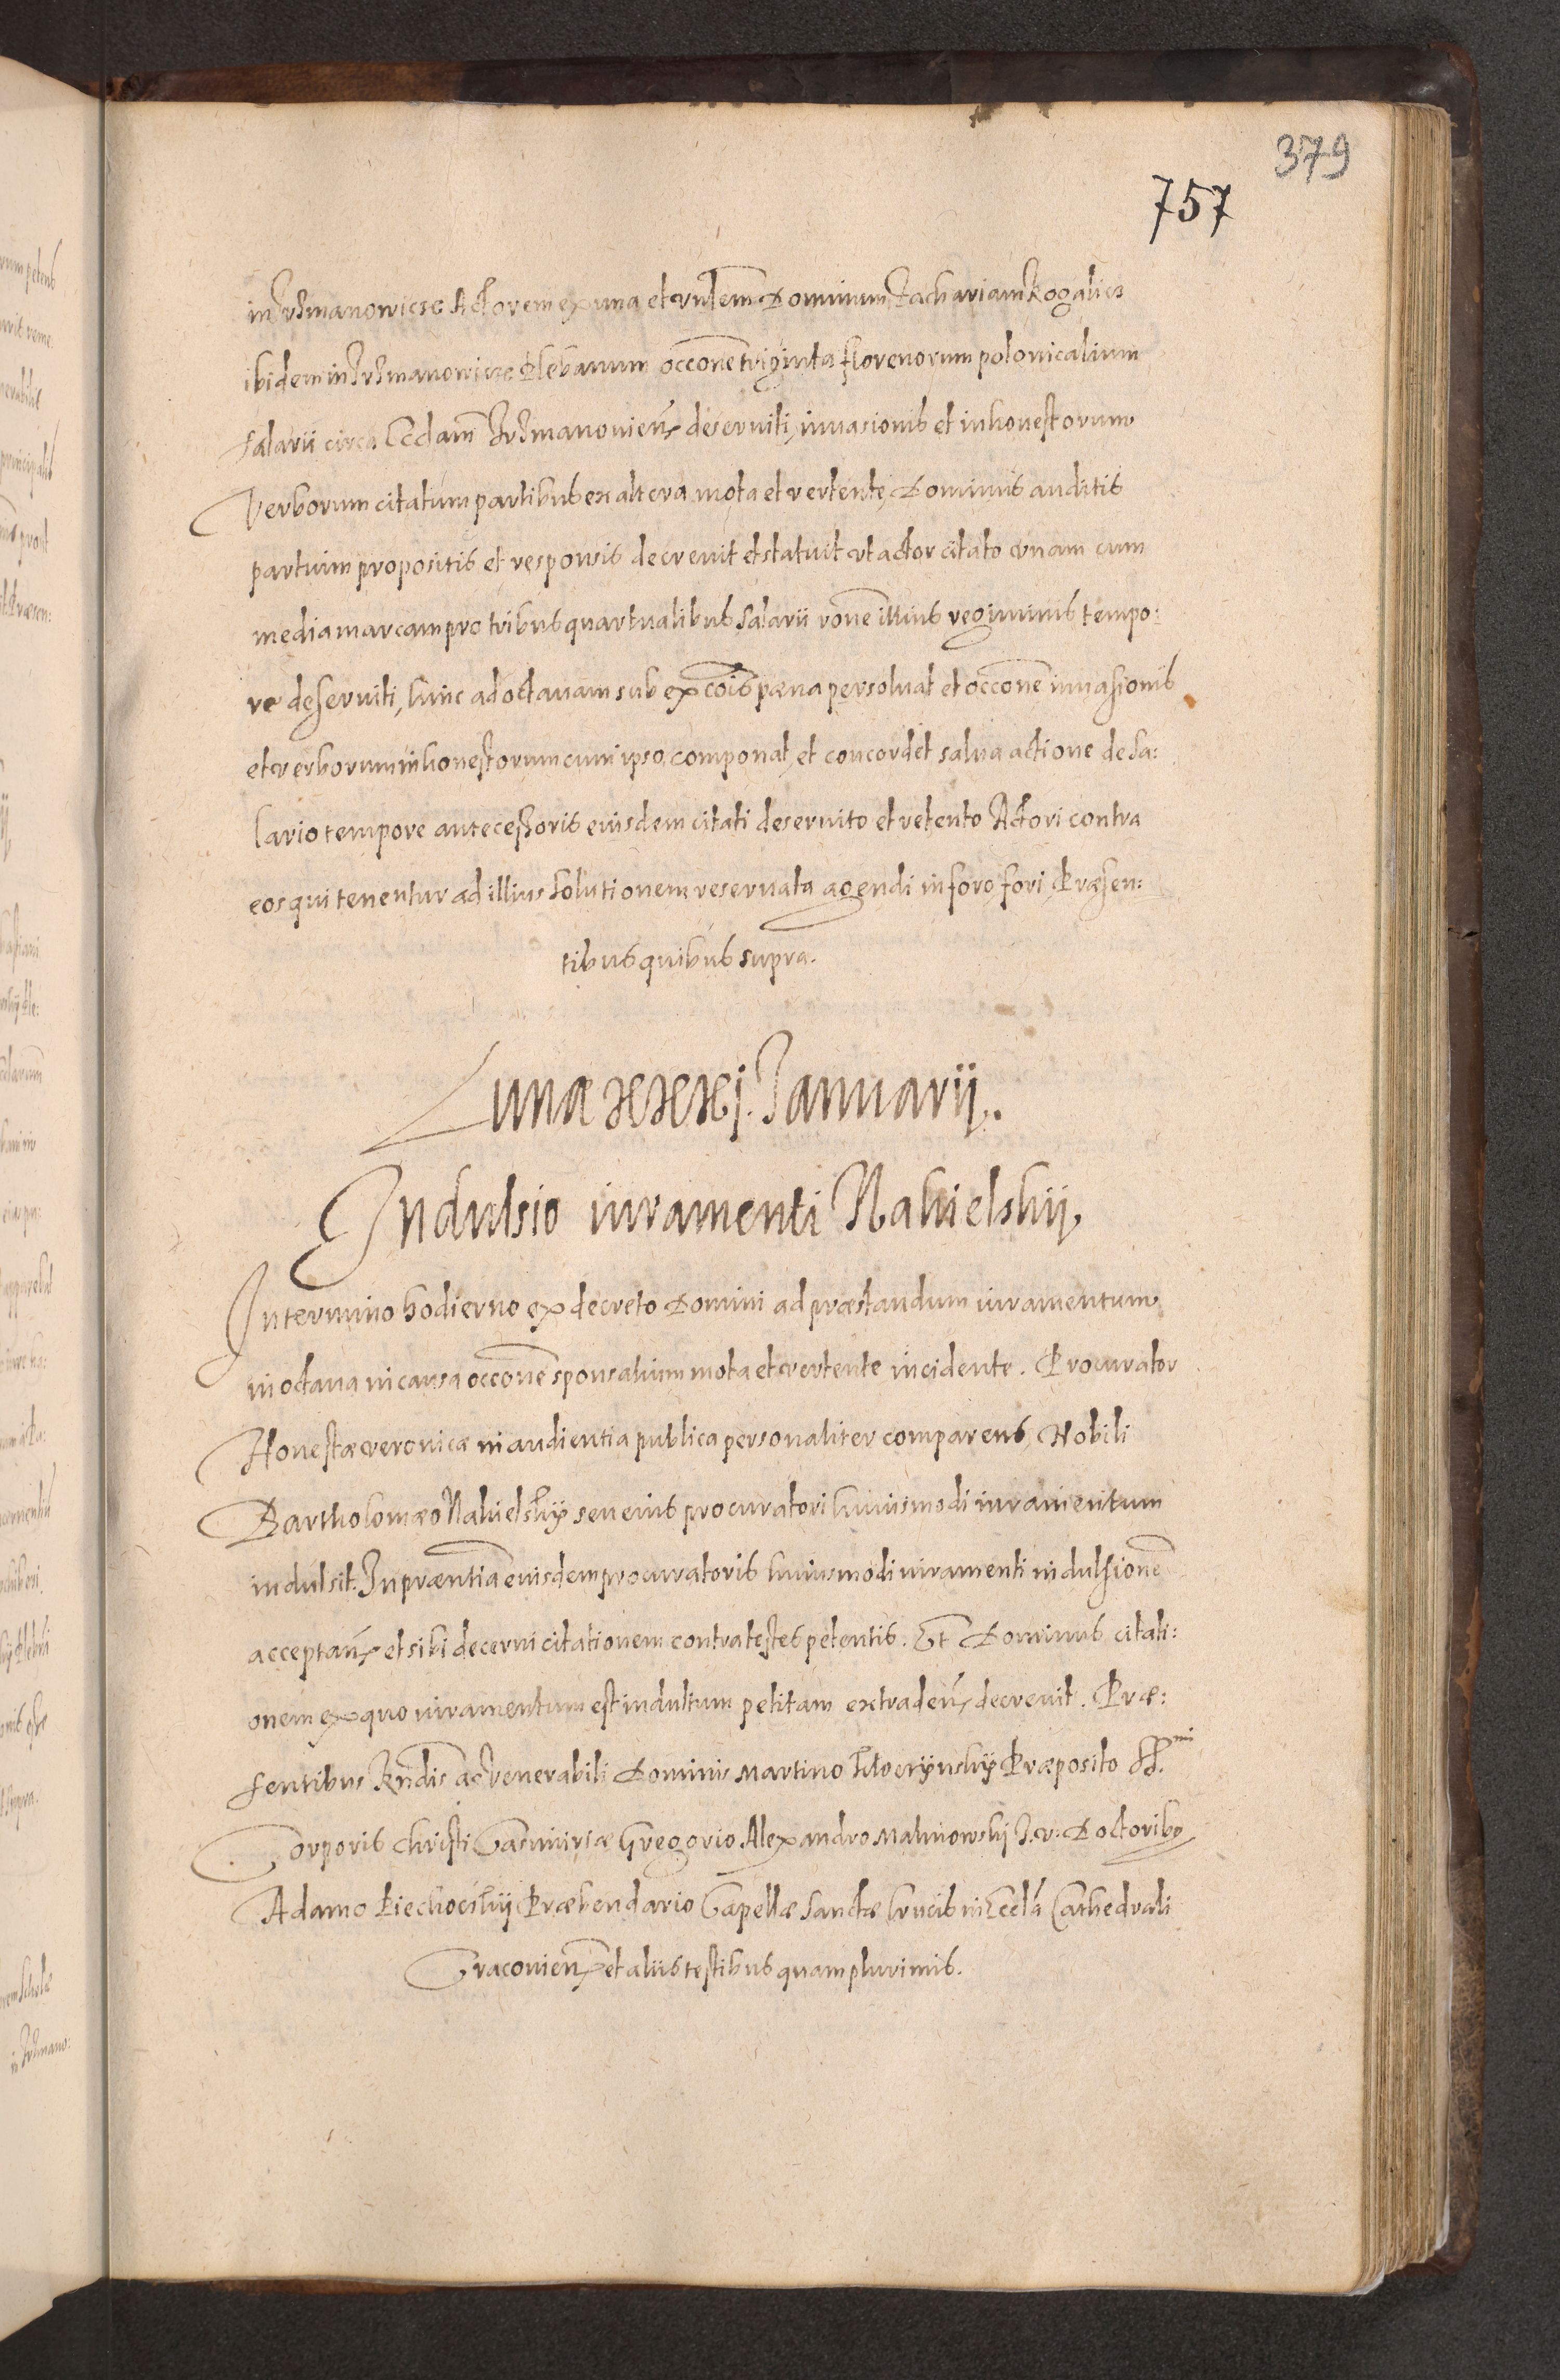 379
757
in Irzmanowicze Actorem ex una et vnlem Dominum Zachariam Rogalicz
ibidem in Irzmanowicze Plebanum occone triginta florenorum polonicalium
salarii circa Eccłam Irzmanoviens deserviti, invasionis et inhonestorum
Verborum citatum partibus ex altera mota et vertente, Dominus auditis
partium propositis et responsis decrevit et statuit vt actor citato vnam cum
media marcam pro tribus quartualibus salarii rone illius regiminis tempo:
re deserviti, hinc ad octavam sub excois pæna persolvat et occone invasionis
et verborum inhonestorum cum ipso componat, et concordet salva actione de sa:
lario tempore antecessoris eiusdem citati deservito et retento Actori contra
eos qui tenentur ad illius solutionem reservata agendi in foro fori, Præsen:
tibus quibus supra.
Lunæ xxxj. Januarii.
Indulsio iuramenti Nakielskij,
In termino hodierno ex decreto Domini ad præstandum iuramentum
in octava in causa occone sponsalium mota et vertente incidente. Procurator
Honestæ Veronicæ in audientia publica personaliter comparens, Nobili
Bartholomæo Nakielsky seu eius procuratori huiusmodi iuramentum
indulsit. In præntia eiusdem procuratoris huiusmodi iuramenti indulsione
acceptans, et sibi decerni citationem contra testes petentis. Et Dominus citati:
onem ex quo iuramentum est indultum petitam extradens decrevit. Præ:
sentibus Rndis ac Venerabili Dominis Martino Præposito SS.mi
Corporis Christi Casimiriæ Gregorio Alexandro Malinowski J. v. Doctoribus
Adamo Piechocskij Præbendario Capellæ Sanctæ Crucis in Eccla Cathedrali
Cracoviens et aliis testibus quam plurimis.